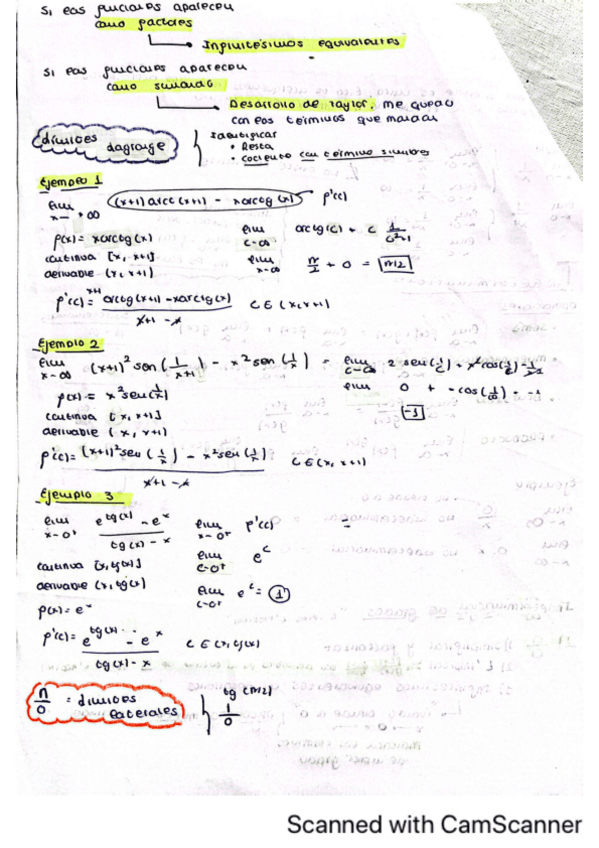 Si las funciones aparecen
como factores
Infinitésimos equivalentes
Si las funciones aparecen
como sumando
Desarrollo de Taylor, me quedo
con los términos que mandan
límites Lagrange
Identificar
• Resta
• Cociente con término similares
Ejemplo 1
lim x→+∞ (x+1) arctg (x+1) - x arctg (x) f'(c)
f(x) = x arctg (x) lim c→∞ arctg (c) + c 1/c²+1
continua [x, x+1] lim x→∞ π/2 + 0 = π/2
derivable (x, x+1)
f'(c) = x+1 arctg (x+1) - x arctg (x) / x+1 - x c ∈ (x, x+1)
Ejemplo 2
lim x→∞ (x+1)² sen (1/x+1) - x² sen (1/x) = lim c→∞ 2 sen (1/c) + x² cos(1/c) -1/x²
f(x) = x² sen (1/x) lim 0 + -cos(1/∞) = -1
continua [x, x+1] -1
derivable (x, x+1)
f'(c) = (x+1)² sen (1/x) - x² sen (1/x) / x+1 - x c ∈ (x, x+1)
Ejemplo 3
lim x→0⁺ e^tg(x) - e^x / tg(x) - x lim x→0⁺ f'(c) =
continua [x, tg(x)] lim c→0⁺ e^c
derivable (x, tg(x)) lim c→0⁺ e^c = 1
f(x) = e^x
f'(c) = e^tg(x) - e^x / tg(x) - x c ∈ (x, tg(x))
n/0 = límites laterales tg (π/2) 1/0
Scanned with CamScanner